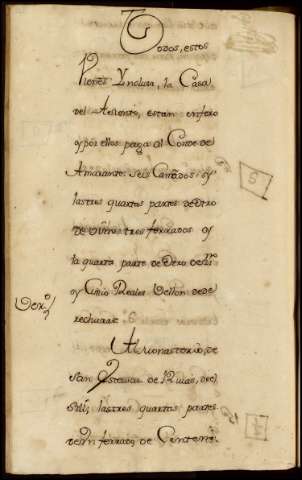 Todos, estos
Vienes Ynclusa, la Casa
del Asiento, estan en foro
y por ellos paga al Conde de
Amarante: Seis Cañados, y
las tres quartas partes de otro
de vino: tres ferrados y
la quarta parte de otro de
y Cinco Reales Vellon de de
rechuraz
Al Monasterio, de
San Estevan de Rivas, de
Sil, las tres quartas partes
de Un ferrado de Centeno